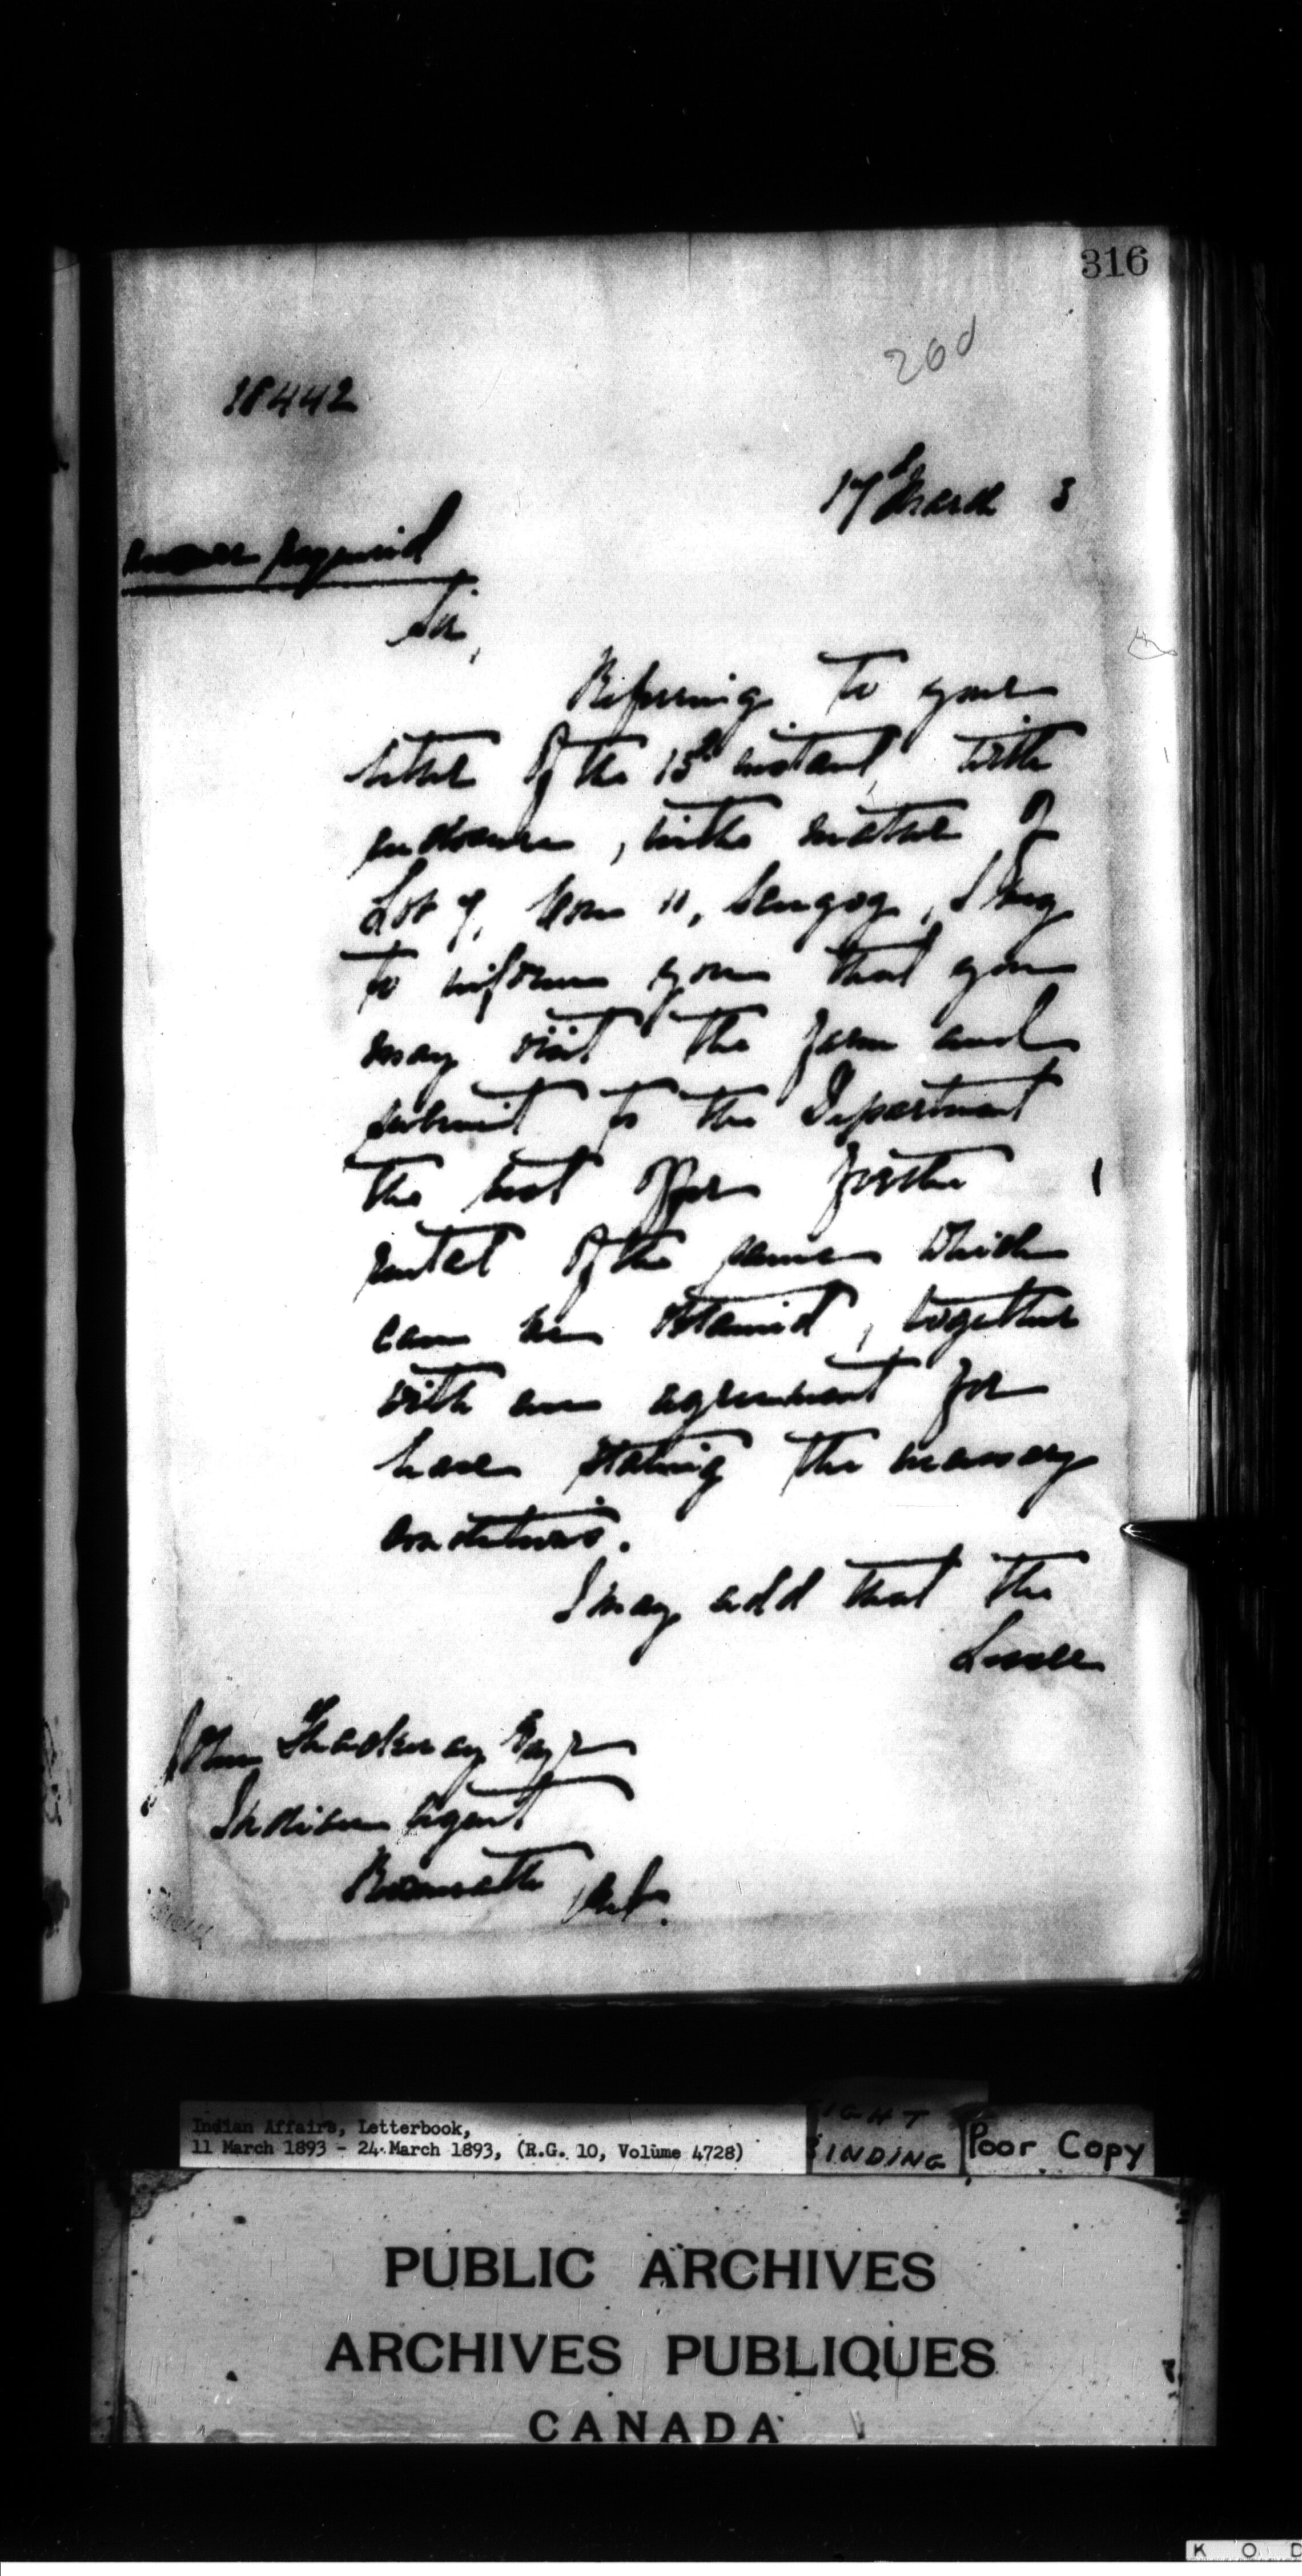 316
260
18442
17th March 3
Answer required
Sir,
Referring to your
letter of the 15th instant, with
enclosure, in the matter of
Lot 7, Con 11, Scugog, I beg
to inform you that you
may visit the farm and
submit to the Department
the best offer for the
rental of the same which
can be obtained, together
with an agreement for
lease stating the necessary
conditions.
I may add that the
Lessee
John Thackeray Esqr
Indian Agent
Roseneath, Ont.
Indian Affairs, Letterbook,
11 March 1893 - 24 March 1893, (R.G. 10, Volume 4728)
BINDING
Poor Copy
PUBLIC ARCHIVES
ARCHIVES PUBLIQUES
CANADA
K O D